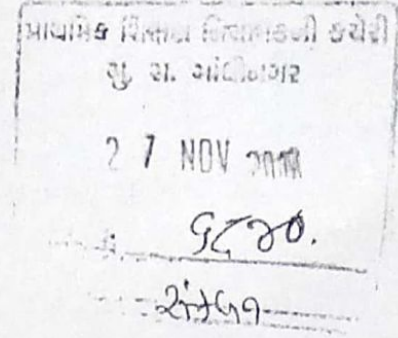 પ્રાથમિક શિક્ષણ નિયામકની કચેરી
ગુ. રા. ગાંધીનગર
2 7 NOV
૬૮૭૦.
સંકલન